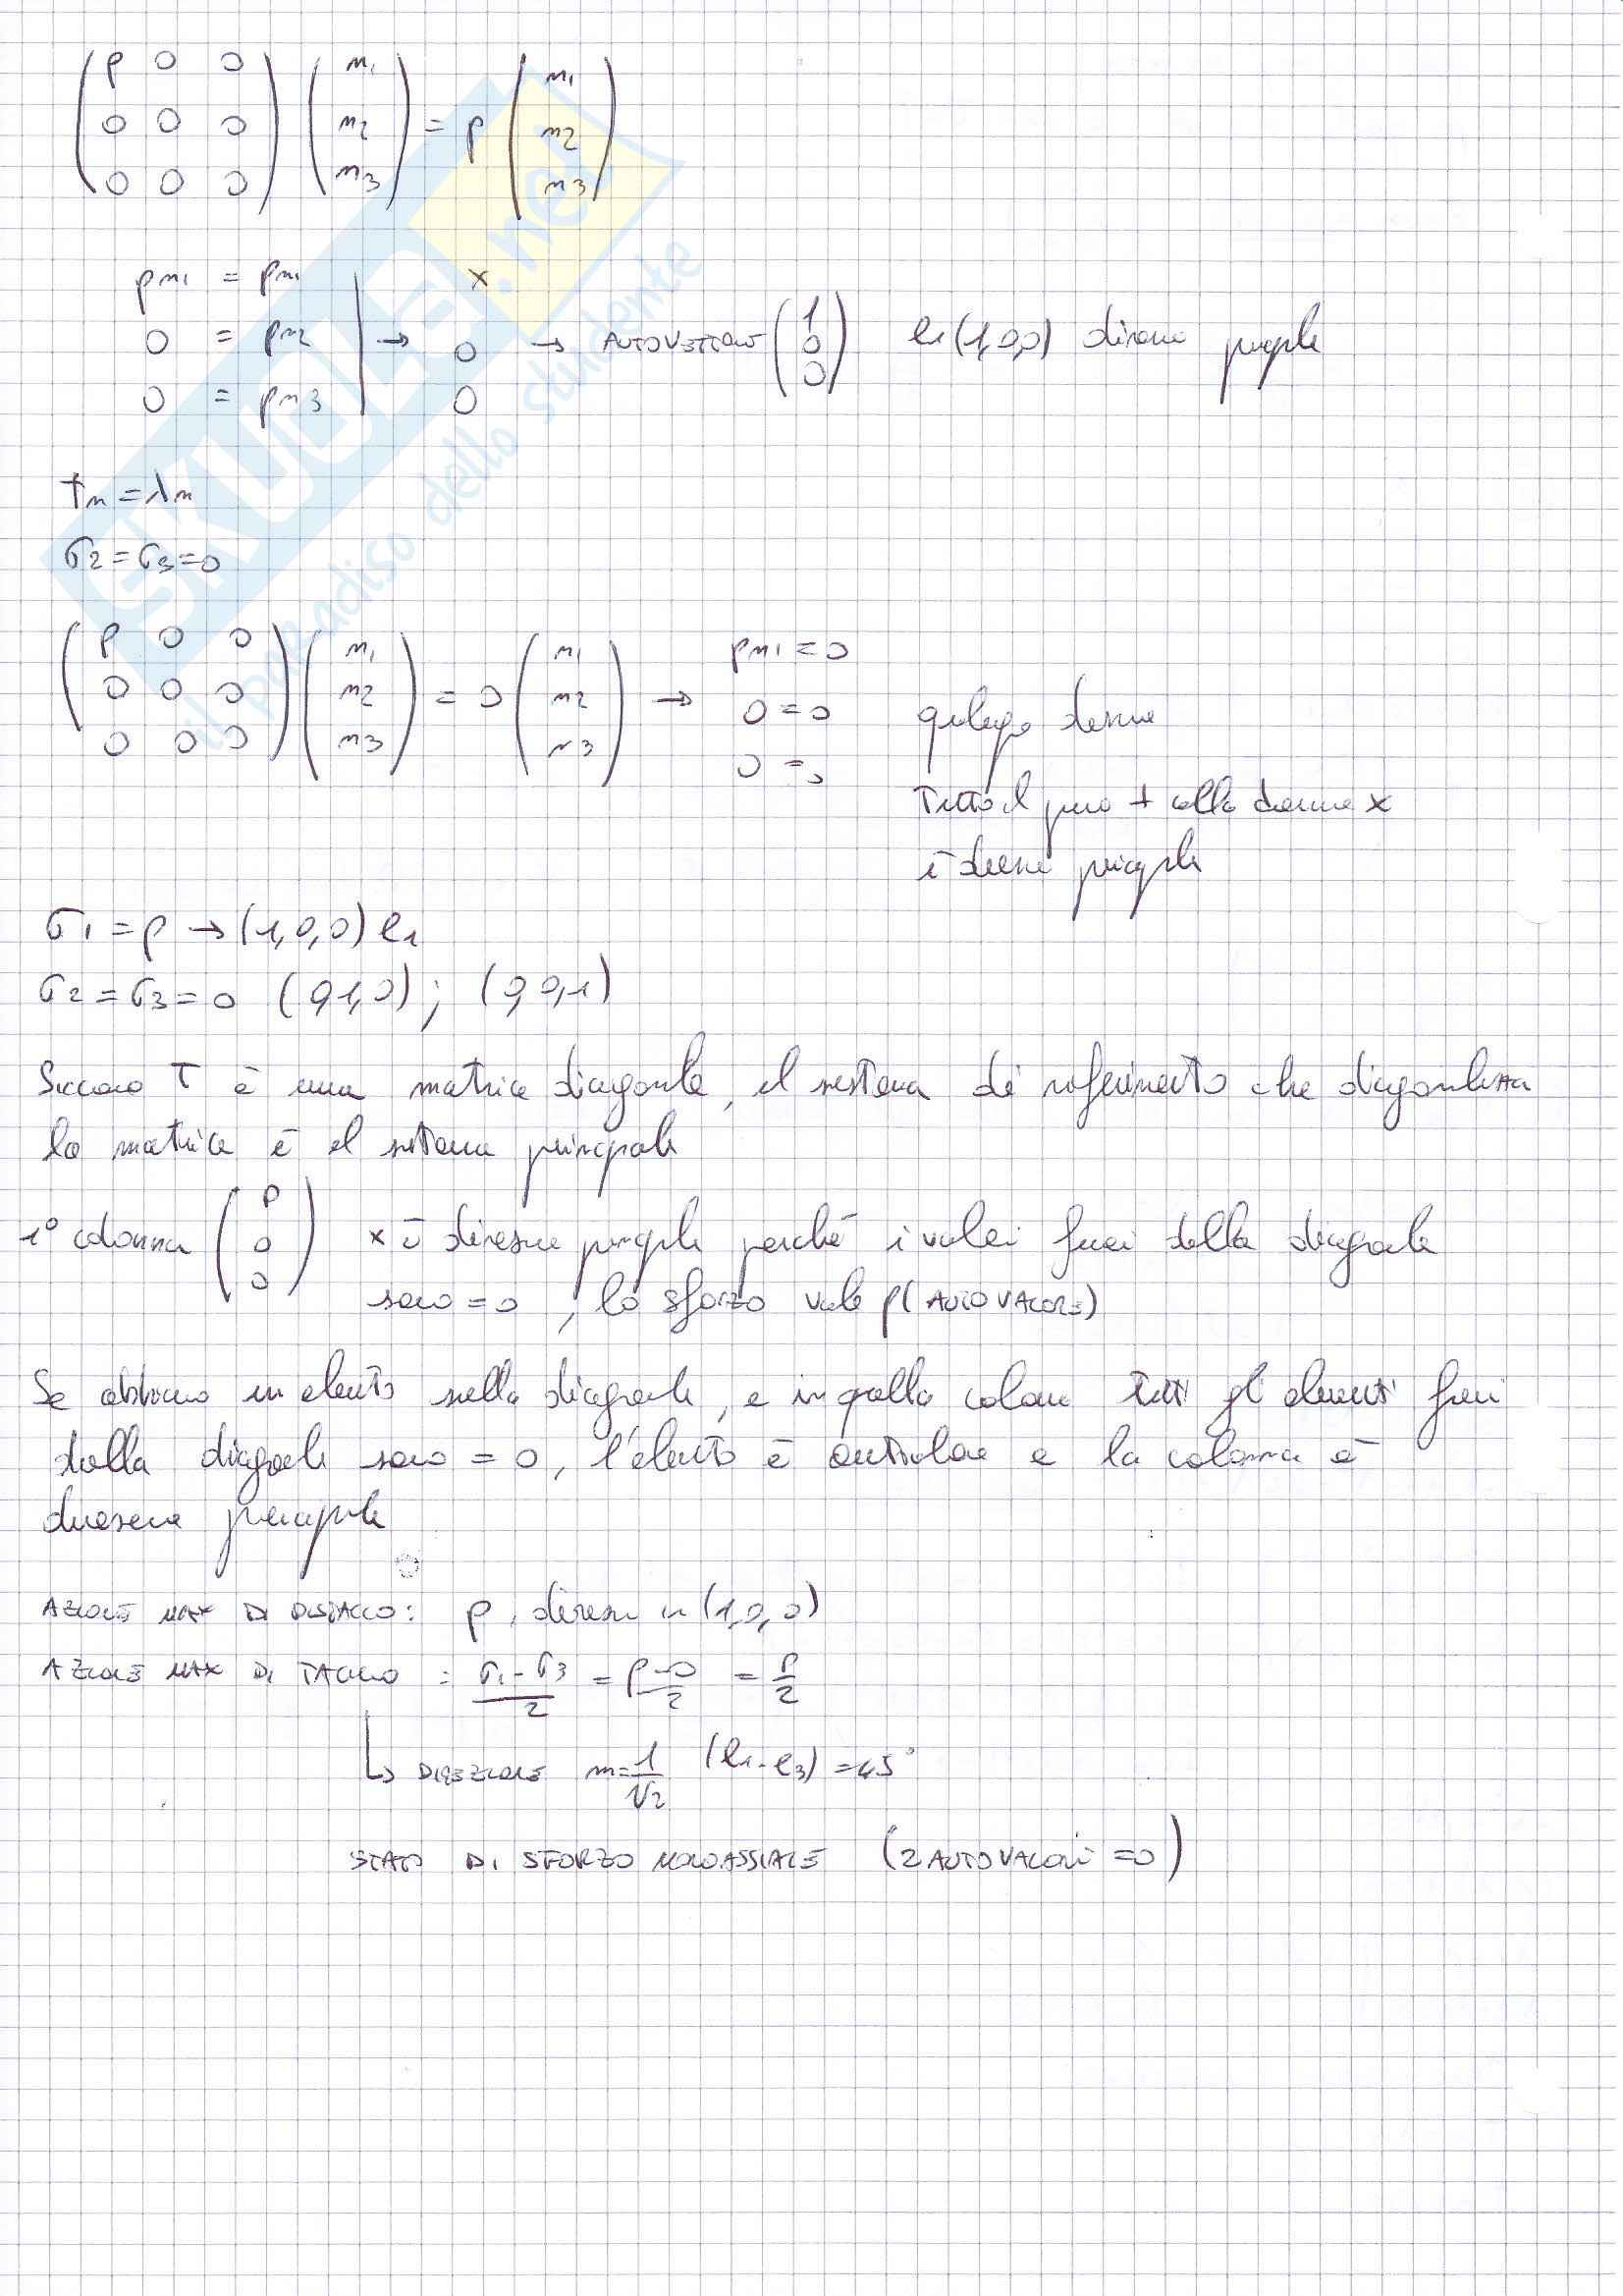 ( p 0 0 / 0 0 0 / 0 0 0 ) ( n1 / n2 / n3 ) = p ( n1 / n2 / n3 )
pn1 = pn1 x
0 = pn2 → 0 → AUTOVETTORE ( 1 / 0 / 0 ) e1 (1,0,0) direzione principale
0 = pn3 0
Tn = λn
σ2 = σ3 = 0
( p 0 0 / 0 0 0 / 0 0 0 ) ( n1 / n2 / n3 ) = 0 ( n1 / n2 / n3 ) → pn1 = 0
0 = 0 qualunque direzione
0 = 0
Tutto il piano ⊥ alla direzione x
è direzione principale
σ1 = p → (1,0,0) e1
σ2 = σ3 = 0 (0,1,0) ; (0,0,1)
Siccome T è una matrice diagonale, il sistema di riferimento che diagonalizza
la matrice è il sistema principale
1° colonna ( p / 0 / 0 ) x è direzione principale perché i valori fuori della diagonale
sono = 0 , lo sforzo vale p (AUTOVALORE)
Se abbiamo un elemento sulla diagonale, e in quella colonna tutti gli elementi fuori
dalla diagonale sono = 0, l'elemento è autovalore e la colonna è
direzione principale
AZIONE MAX DI DISTACCO: p, direzione (1,0,0)
AZIONE MAX DI TAGLIO : σ1-σ3/2 = p-0/2 = p/2
↳ DIREZIONE m = 1/√2 (e1-e3) = 45°
STATO DI SFORZO MONOASSIALE (2 AUTOVALORI = 0)
SKUOLA.net
il paradiso dello studente